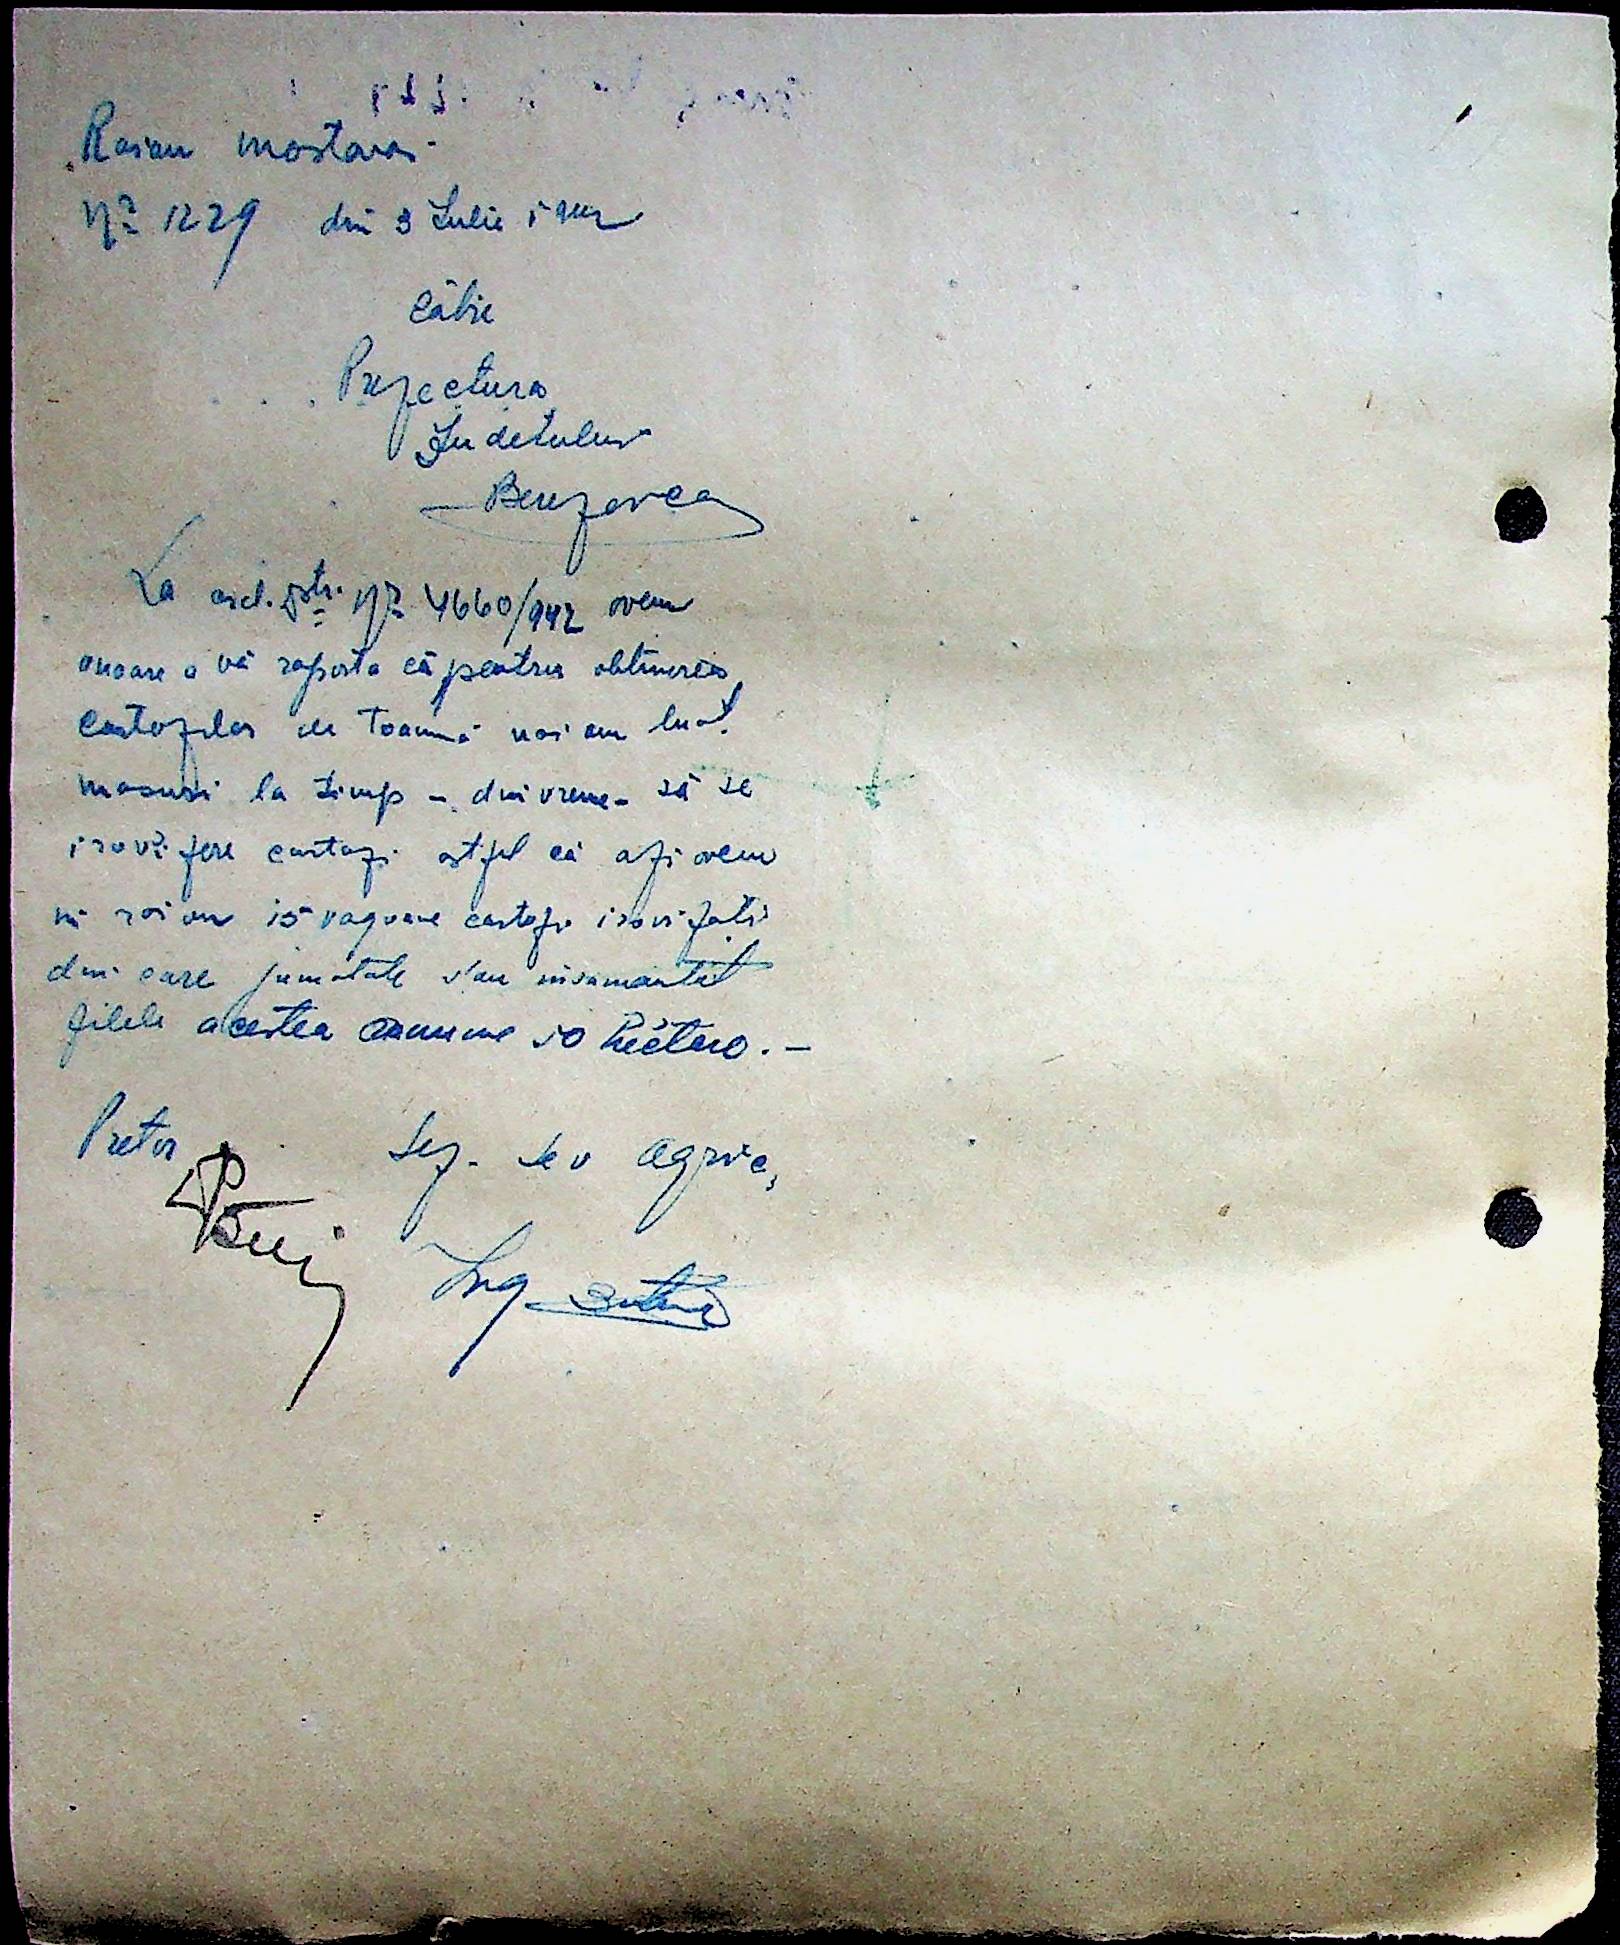 Raion mostovoi
No 1229 din 3 Iulie 1942
Către
Prefectura
Judetului
Berezovca
La ord. Dtr. No 4660/942 avem
onoare a vă raporta că pentru obtinerea
cartofilor de toamnă noi am luat
masuri la timp - din vreme - să se
iarovizeze cartofi astfel că azi avem
in raion 15 vagoane cartofi iarovizati
din care jumatate s'au insamantat
zilele acestea anume 50 hectare. -
Pretor Sef. Serv Agric,
Ing